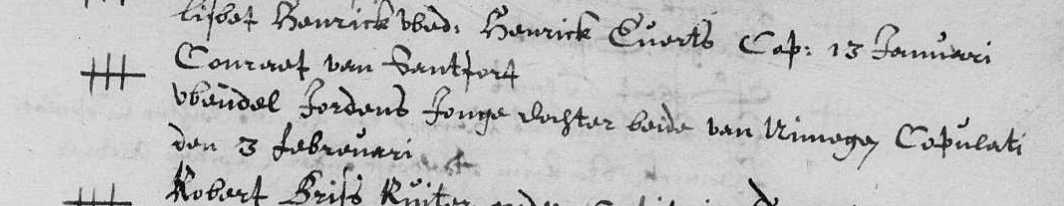 lisbet Henrick wed: Henrick Euerts Cop: 13 Januari
Conraet van Santfort
Wendel Jordens Jonge dochter beide van Nimege Copulati
den 3 februari
Robert Ruiter